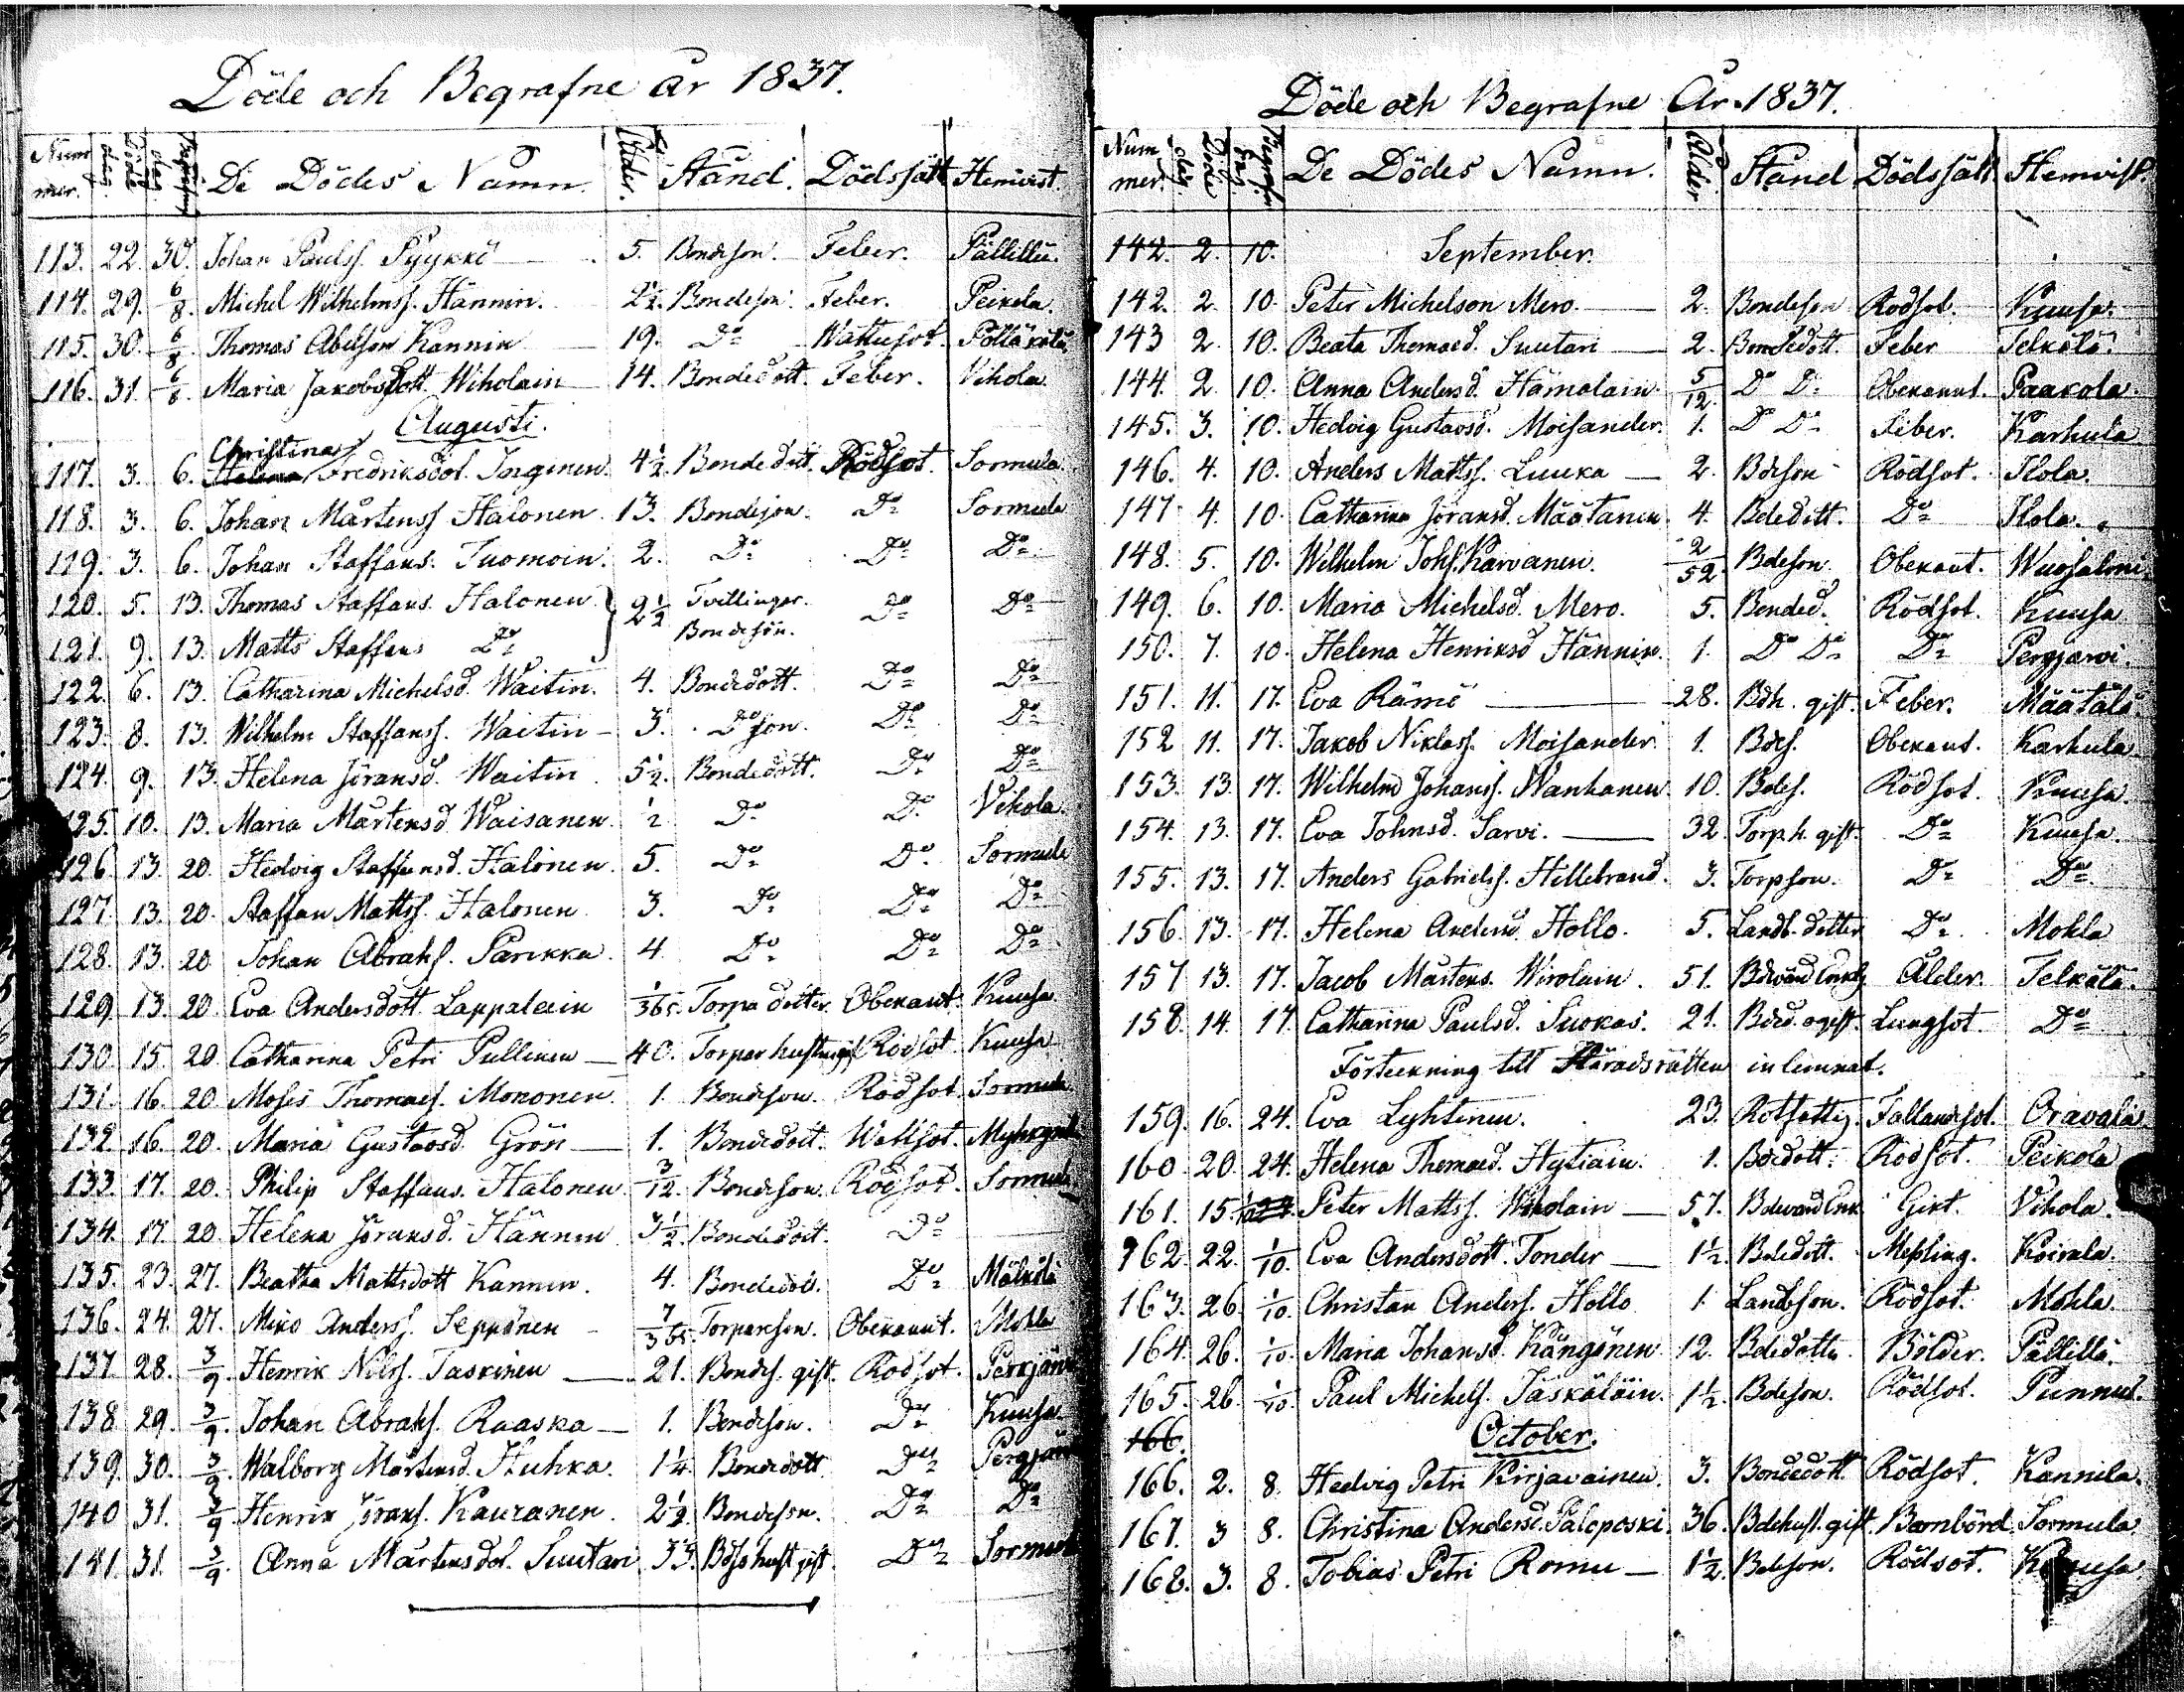 Döde och Begrafne år 1837.
Nummer. Döde dag Begrafn dag De Dödes Namn. Ålder. Stånd. Dödssätt Hemvist.
113. 22. 30. Johan Paulss. Pyykkö 5. Bondeson. Feber. Pällillä.
114. 29. 6/8. Michel Wilhelmss. Hännin. 2½. Bondeson. Feber. Peikola.
115. 30. 6/8. Thomas Abelson Kannin 19. Do Wattusot. Pölläkälä
116. 31. 6/8. Maria Jakobsdott. Wiholain 14. Bondedott. Feber. Vihola
Augusti.
Christina
117. 3. 6. Helena Fredriksdot. Inginen. 4½. Bondedott. Rödsot. Sormula
118. 3. 6. Johan Mårtenss Halonen. 13. Bondeson. Do Sormula
119. 3. 6. Johan Staffans. Tuomoin. 2. Do Do Do
120. 5. 13. Thomas Staffans. Halonen } 2½ Tvillingar. Do Do
121. 9. 13. Matts Staffans Do Bondesön.
122. 6. 13. Catharina Michelsd. Waitin. 4. Bondedott. Do Do
123. 8. 13. Wilhelm Staffanss. Waitin 3. Do son. Do Do
124. 9. 13. Helena Jöransd. Waitin 5½. Bondedott. Do Do
125. 10. 13. Maria Mårtensd. Waisanen. ½ Do Do Vihola.
126. 13. 20. Hedvig Staffansd. Halonen. 5. Do Do Sormula
127. 13. 20. Staffan Mattss. Halonen 3. Do Do Do
128. 13. 20 Johan Abrahs. Parikka. 4 Do Do Do
129. 13. 20. Eva Andersdott. Lappalain 1/365. Torpa dotter. Obekant. Kuusa
130. 15. 20. Catharina Petri Pullinen 40. Torpar hustru gift Rödsot. Kuusa
131. 16. 20. Moses Thomaes. Mononen 1. Bondeson. Rödsot. Sormula
132. 16. 20. Maria Gustavsd. Grön 1. Bondedott. Wattsot.
133. 17. 20. Philip Staffans. Halonen 3/12. Bondeson. Rödsot. Sormula
134. 17. 20. Helena Jöransd. Hännin 3½. Bondedott. Do
135. 23. 27. Beatha Mattsdott Kannin. 4. Bondedot. Do Mälkölä
136. 24. 27. Miko Anderss. Seppönen 7/365. Torpareson. Obekannt. Mohla
137 28. 3/9. Henrik Nilss. Taskinen 21. Bondes. gift. Rödsot. Perkjärvi
138 29. 3/9. Johan Abrahs. Raaska 1. Bondeson. Do Kuusa.
139. 30. 3/9. Walborg Mårtensd. Huhka. 1¼. Bondedott Do Pergjärvi
140 31. 3/9. Henrik Jörans. Kauranen. 2½. Bondeson. Do Do
141. 31. 3/9. Anna Mårtensdot. Suutari 33. hust gift. Do Sormula
Döde och Begrafne År 1837.
Nummer. Döde dag Begrafn dag De Dödes Namn. Ålder Stånd Dödssätt. Hemvist.
142. 2. 10. September.
142. 2. 10. Peter Michelson Mero. 2. Bondeson Rödsot. Kuusa.
143 2. 10. Beata Thomaed. Suutari 2. Bondedott. Feber Telkälä.
144. 2. 10. Anna Andersd. Hämäläin. 5/12. Do Do Obekannt. Paakola.
145. 3. 10. Hedvig Gustavsd. Moisander. 1. Do Do Feber. Karhula
146. 4. 10. Anders Mattss. Luuka 2. Bdeson Rödsot. Ilola.
147 4. 10. Catharina Jöransd. Määtanen. 4. Bdedott. Do Ilola.
148. 5. 10. Wilhelm Johs. Karvanen. 2/52. Bdeson. Obekant. Wuosalmi.
149. 6. 10. Maria Michelsd. Mero. 5. Bonded. Rödsot. Kuusa
150. 7. 10. Helena Henriksd Hännin. 1. Do Do Do Pergjärvi.
151. 11. 17. Eva Rämö 28. Bdh. gift. Feber. Määtälä.
152 11. 17. Jakob Niklass. Moisander. 1. Bdes. Obekant. Karhula
153. 13. 17. Wilhelm Johanss. Wanhanen. 10. Bdes. Rödsot. Kuusa.
154. 13. 17. Eva Johnsd. Sarvi. 32. Torp. h. gift. Do Kuusa.
155. 13. 17. Anders Gabrielss. Hillebrand. 3. Torpson. Do Do
156. 13. 17. Helena Andersd. Hollo. 5. Landb. dotter Do Mohla
157 13. 17. Jacob Mårtens. Wirolain. 51. Ålder. Telkälä.
158. 14. 17. Catharina Paulsd. Suokas. 21. Bded. ogift. Lungsot. Do
Förteckning till Häradsrätten inlemnat.
159. 16. 24. Eva Lyhtinen. 23. Rotfattig. Fallandesot. Oravala.
160. 20. 24. Helena Thomaed. Hytiäin. 1. Bdedott. Rödsot. Peikola
161. 15. 1/10 Peter Mattss. Wiholain 57. Gikt. Vihola.
162. 22. 1/10. Eva Andersdott. Tonder 1½. Bdedott. Mesling. Koirala.
163. 26. 1/10. Christian Anders. Hollo 1. Landbson. Rödsot. Mohla
164. 26. 1/10. Maria Johansd. Kängönen 12. Bdedotter. Bölder. Pällilä.
165. 26. 1/10. Paul Michels. Jäskäläin. 1½. Bdeson. Rödsot. Punnus.
166. October.
166. 2. 8. Hedvig Petri Kirjavainen. 3. Bondedott. Rödsot. Kannila.
167. 3 8. Christina Andersd. Paloposki. 36. Bdehust. gift. Barnbörd Sormula
168. 3. 8. Tobias Petri Romu 1½. Bdeson. Rödsot. Kuusa